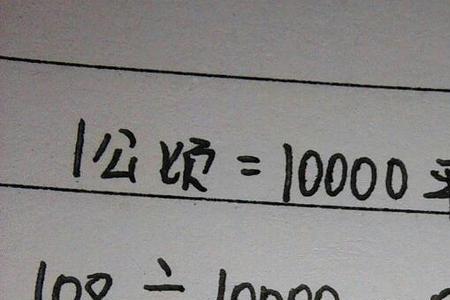 1公顷=10000平
108÷10000